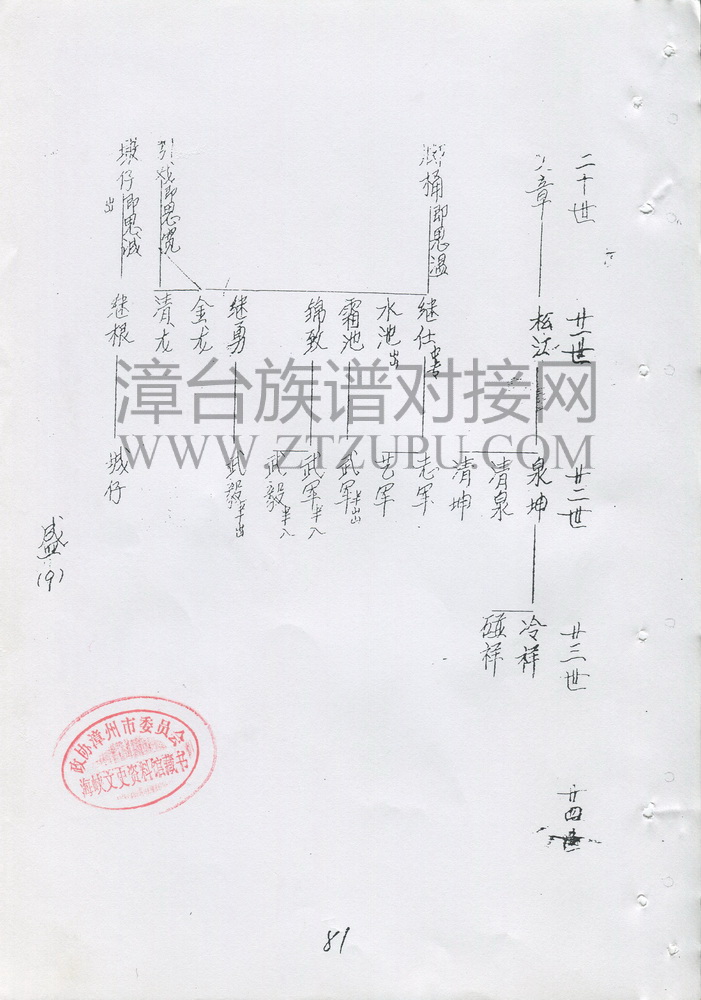 二十世
廿一世
廿二世
廿三世
廿四世
章
松江
泉坤
清泉
清坤
冷祥
碰祥
桶即思温
继仕
水池出
霜池
锦致
继勇
金龙
清龙
志军
艺军
武军半出
武军半入
武毅半入
武毅半出
引 即思宽
仔即思诚
出
继根
城仔
盛(9)
漳台族谱对接网
WWW.ZTZUPU.COM
政协漳州市委员会
海峡文史资料馆藏书
81